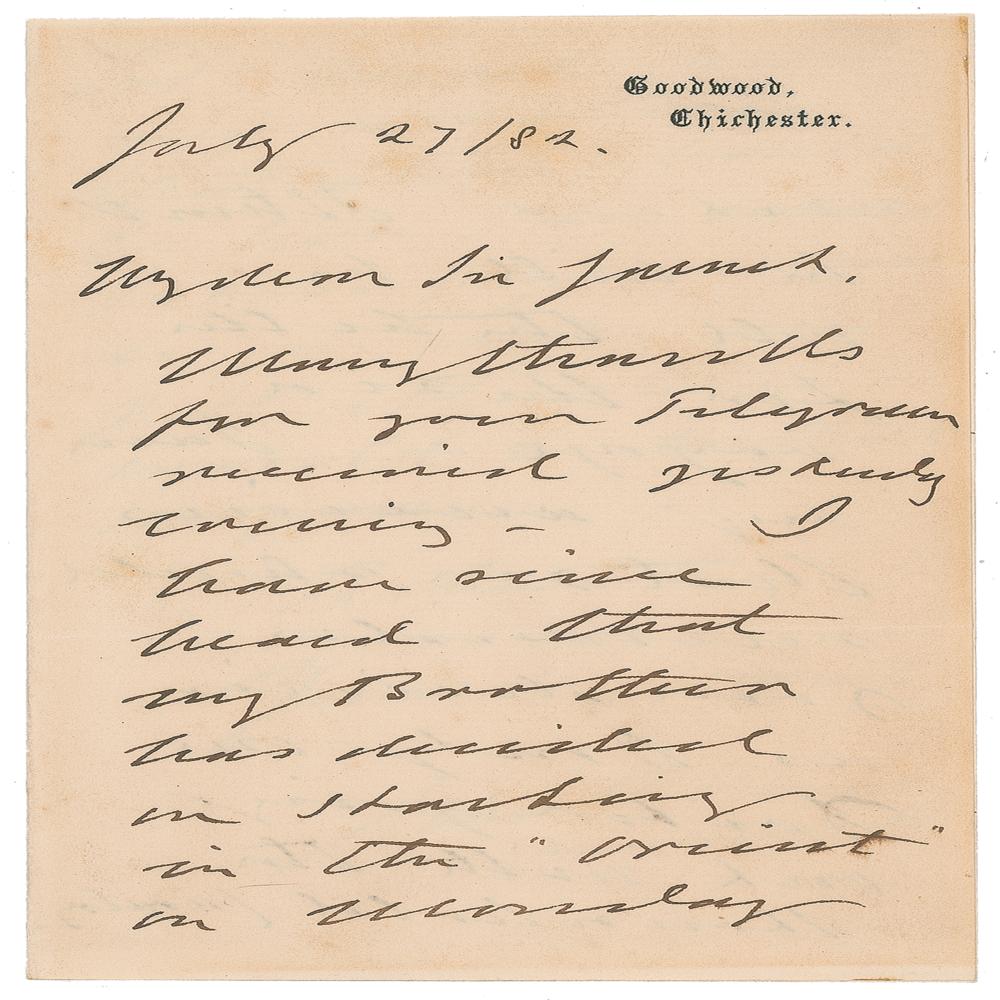 Goodwood,
Chichester.
July 27/82.
My dear Sir James.
Many thanks
for your Telegram
received yesterday
evening - I
have since
heard that
my Brother
has decided
on starting
in the "Orient"
on Monday